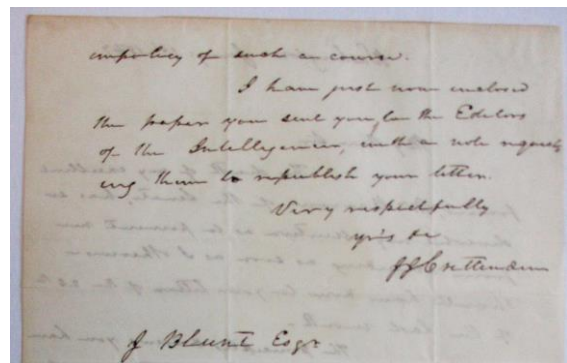 impolicy of such a course.
I have just now enclosed
the paper you sent you, to the Editors
of the Intelligencer, with a note request-
ing them to republish your letter.
Very respectfully
yr's &c
J J Crittenden
J Blunt Esqr